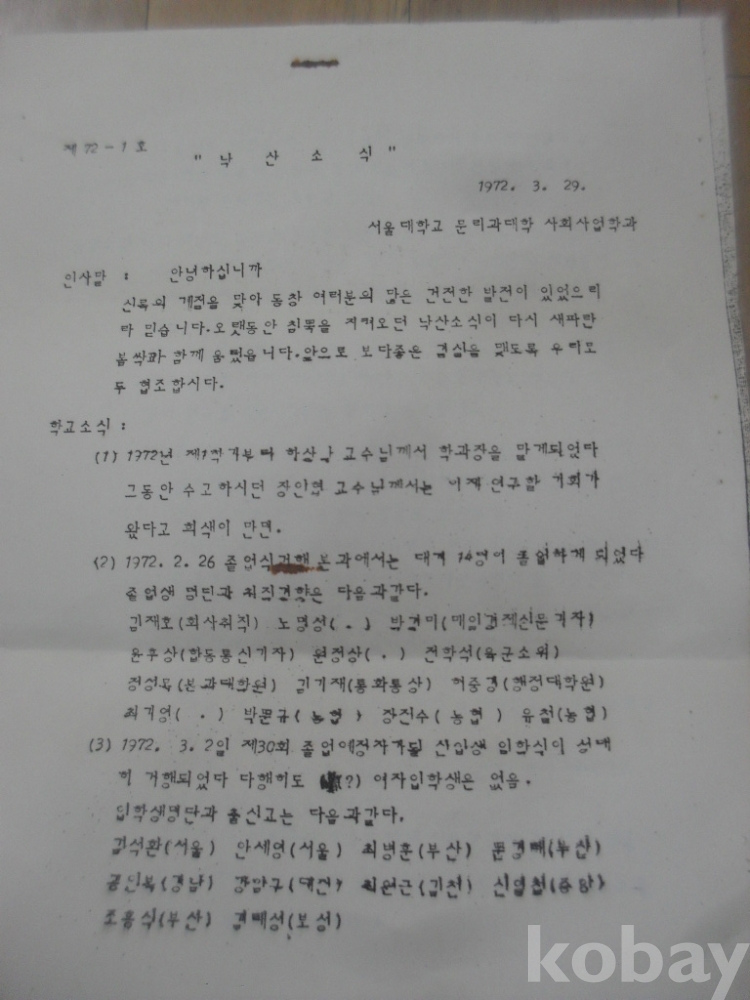 제 72-1 호
" 낙 산 소 식 "
1972. 3. 29.
서울대학교 문리과대학 사회사업학과
인사말 : 안녕하십니까
신록의 계절을 맞아 동창 여러분의 많은 건전한 발전이 있었으리
라 믿습니다.오랫동안 침묵을 지켜오던 낙산소식이 다시 새파란
봄싹과 함께 움텄읍니다.앞으로 보다좋은 결실을 맺도록 우리모
두 협조합시다.
학교소식 :
(1) 1972년 제1학기부터 교수님께서 학과장을 맡게되었다
그동안 수고하시던 장인협 교수님께서는 이제 연구할 기회가
왔다고 희색이 만면.
(2) 1972. 2. 26 졸업식거행 본과에서는 대거 14명이 졸업하게 되었다
졸업생 명단과 취직결향은 다음과같다.
김재호(회사취직) 노명성( . ) 박경미(매일경제신문기자)
윤우상(합동통신기자) 원정상( . ) 전학석(육군소위)
(본과대학원) 김기재(통화통상) 허중경(행정대학원)
( . ) 박문규(농협) 장진수(농협) 유철(농협)
(3) 1972. 3. 2일 제30회 졸업예정자가될 신입생 입학식이 성대
히 거행되었다 다행히도 (?) 여자입학생은 없음.
입학생명단과 출신고는 다음과같다.
김석환(서울) 안세영(서울) 최병훈(부산) (부산)
(경남) (대전) 최원근(김천) (중앙)
조흥식(부산) (보성)
kobay